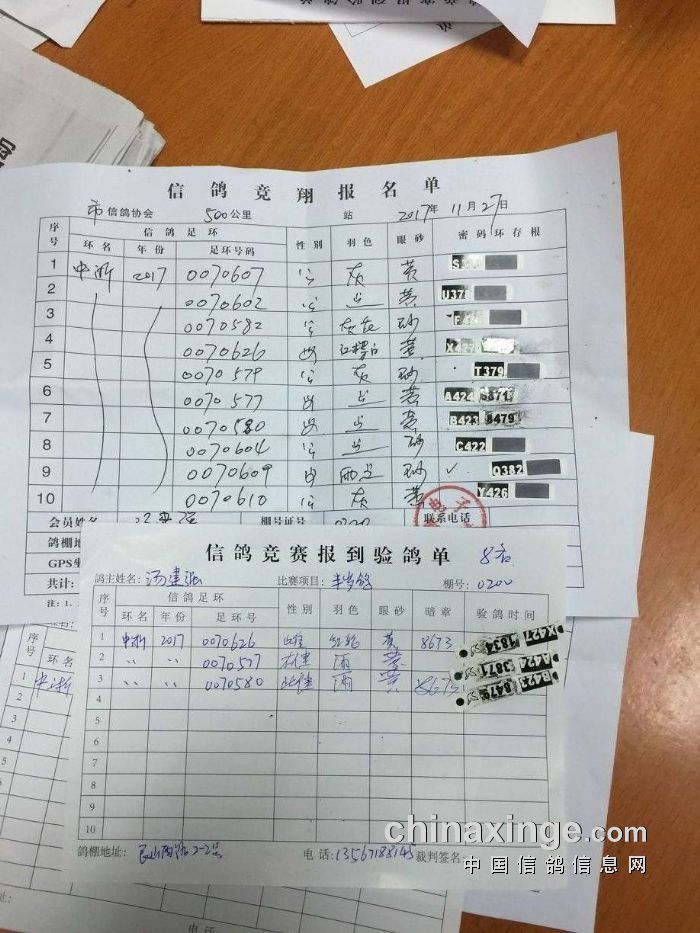 信鸽竞翔报名单
市信鸽协会 500公里 站 2017年 11月27日
序号 信鸽足环 性别 羽色 眼砂 密码环存根
环名 年份 足环号码
1 中浙 2017 0070607 公 灰 黄
2 0070602 公 黄 U378
3 0070582 公 砂
4 0070626 黄 X427
5 0070579 公 灰 砂 T379
6 0070577 黄 A424 3871
7 0070580 黄 B423 8479
8 0070604 公 砂 C422
9 0070609 砂 ✓ Q382
10 0070610 公 灰 黄 Y426
会员姓名 棚号证号 0200 联系电话
鸽棚地
GPS坐
共计:
注:1.
信鸽竞赛报到验鸽单 8名
鸽主姓名: 汤建强 比赛项目: 半岁鸽 棚号: 0200
序号 信鸽足环 性别 羽色 眼砂 暗章 验鸽时间
环名 年份 足环号
1 中浙 2017 0070626 雌 黄 8673 X427 1834
2 〃 〃 0070577 雨 黄 3871 A424
3 〃 〃 0070580 雨 黄 8479 B423
4
5
6
7
8
9
10
鸽棚地址: 电话: 13567188145 裁判签名
序号
环名
1 中浙
2
3
4
5
6
7
8
9
10
电话
chinaxinge.com
中国信鸽信息网